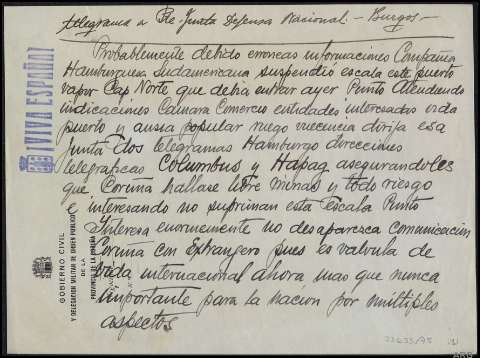 telegrama a Pte Junta Defensa Nacional.- Burgos-
Probablemente debido erroneas informaciones Compañia
Hamburguesa Sudamericana suspendió escala este puerto
vapor Cap Norte que debia entrar ayer Punto Atendiendo
indicaciones Camara Comercio entidades interesadas vida
puerto y ansia popular ruego vuecencia dirija esa
Junta dos telegramas Hamburgo direcciones
telegraficas Columbus y Hapag asegurandoles
que Coruña hallase libre minas y todo riesgo
e interesando no supriman esta escala Punto
Interesa enormemente no desaparezca comunicación
Coruña con Extrangero pues es valvula de
vida internacional ahora mas que nunca
importante para la nacion por multiples
aspectos
¡VIVA ESPAÑA!
GOBIERNO CIVIL
Y DELEGACIÓN MILITAR DE ORDEN PÚBLICO
DE LA
PROVINCIA DE LA CORUÑA